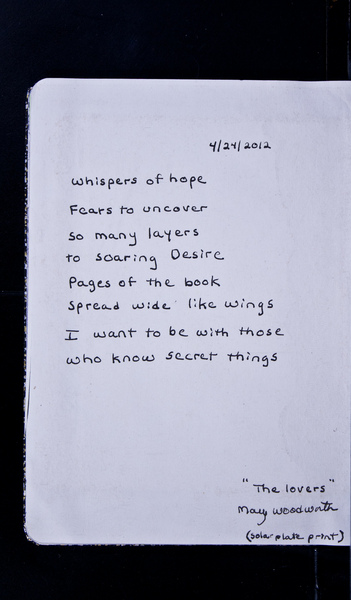 4/24/2012
whispers of hope
Fears to uncover
so many layers
to soaring Desire
Pages of the book
Spread wide like wings
I want to be with those
who know secret things
"The lovers"
May Woodworth
(solar plate print)